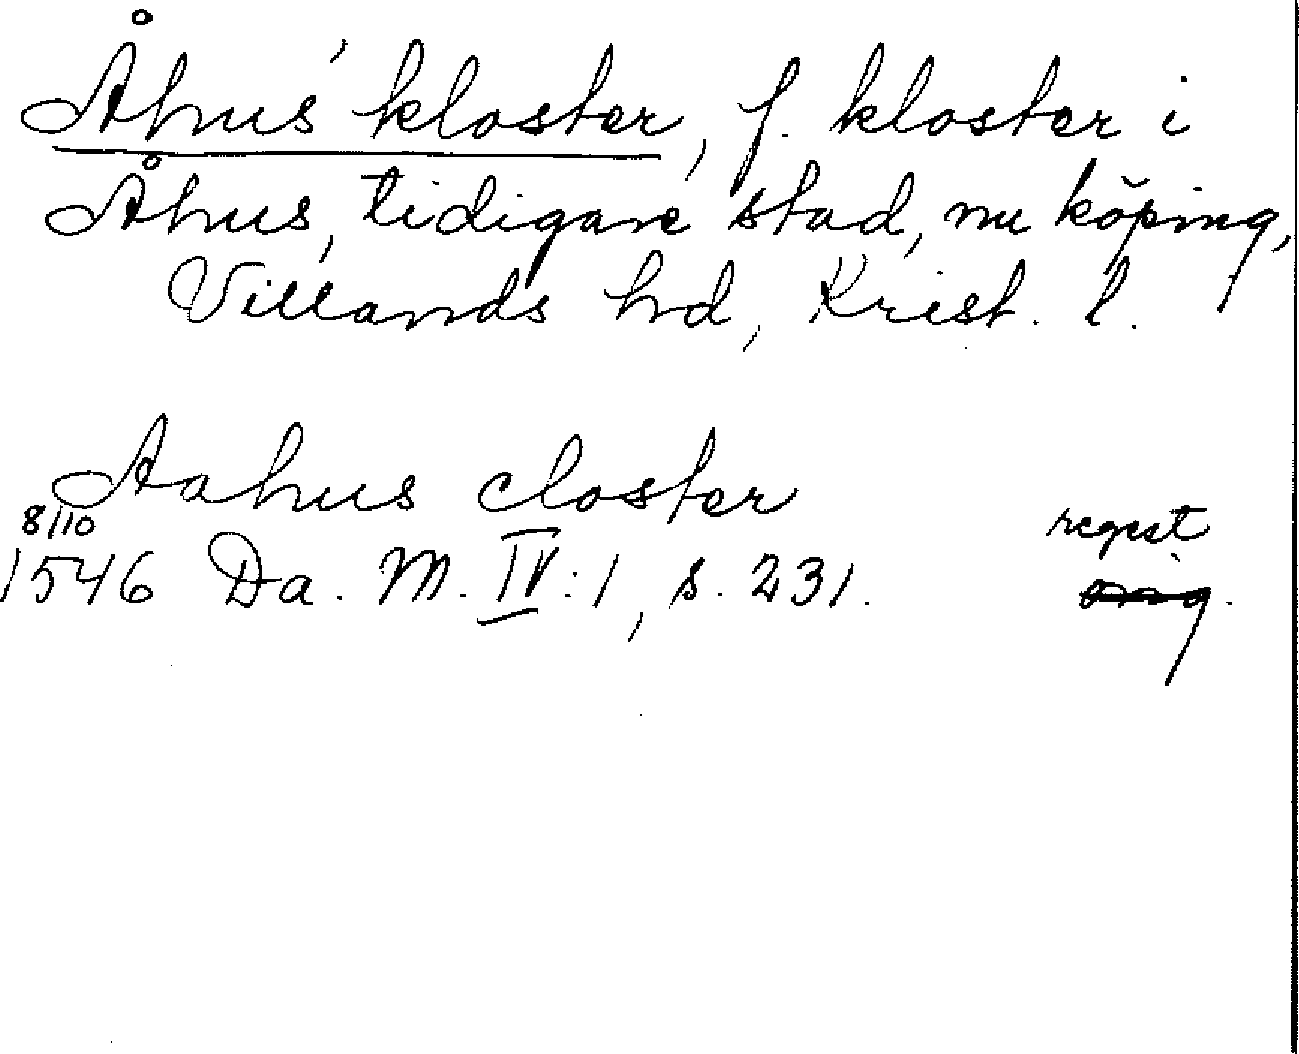 Åhus' kloster, f. kloster i
Åhus, tidigare stad, nu köping,
Villands hd, Krist. l.
Aahus closter
8/10
1546 Da. M. IV:1, s. 231. regest